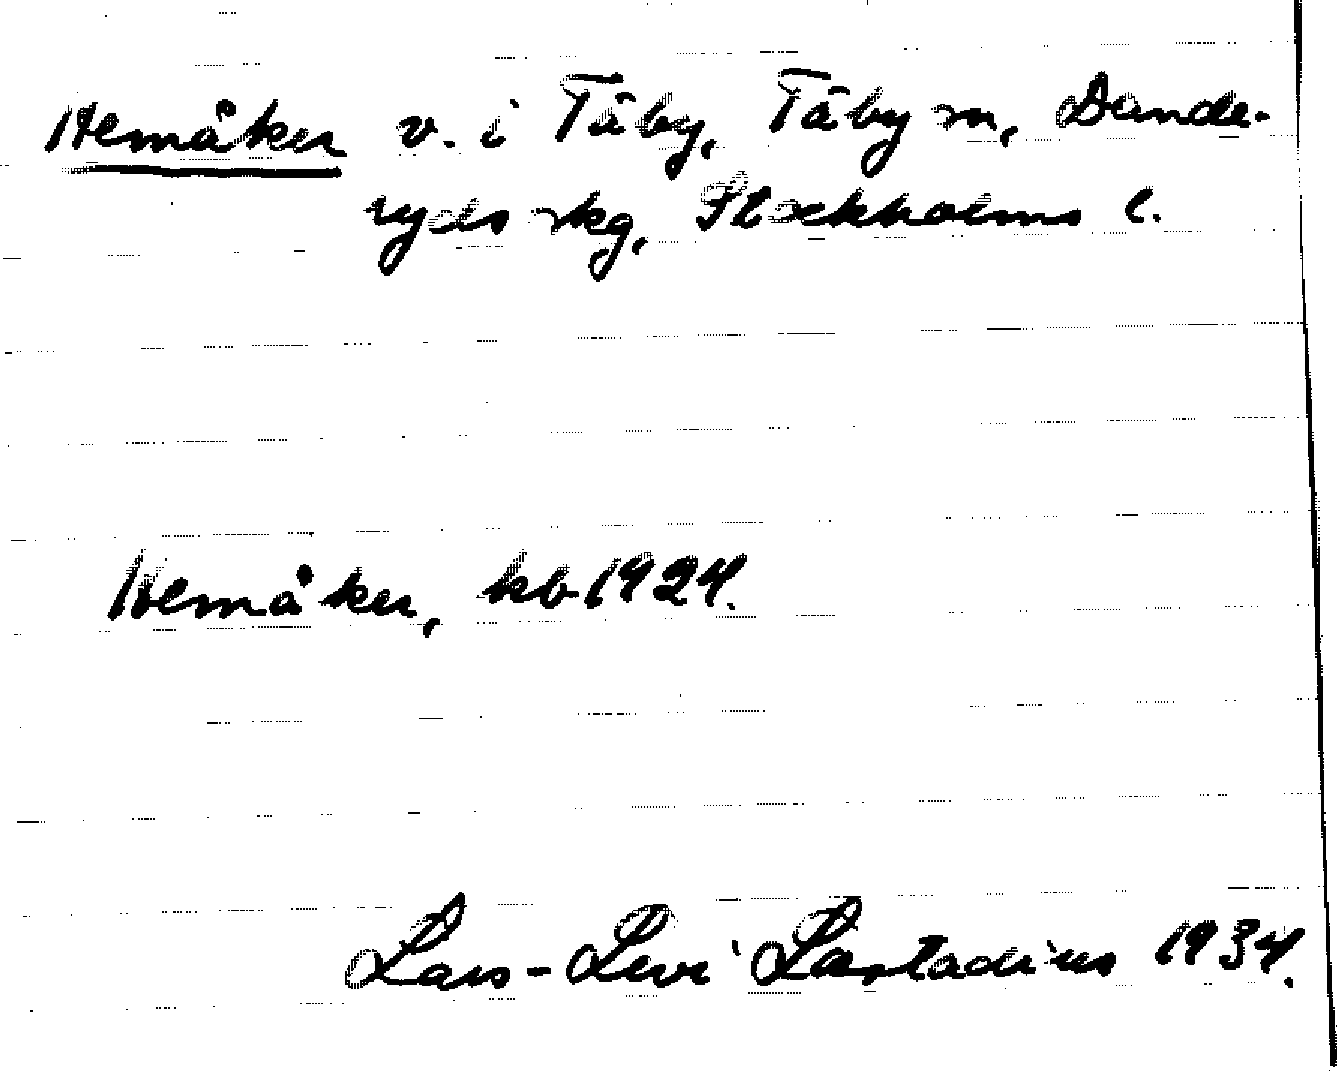 Hemåker v. i Täby, Täby sn, Dande-
ryds skg, Stockholms l.
Hemåker, kb 1924.
Lars-Levi Læstadius 1934.